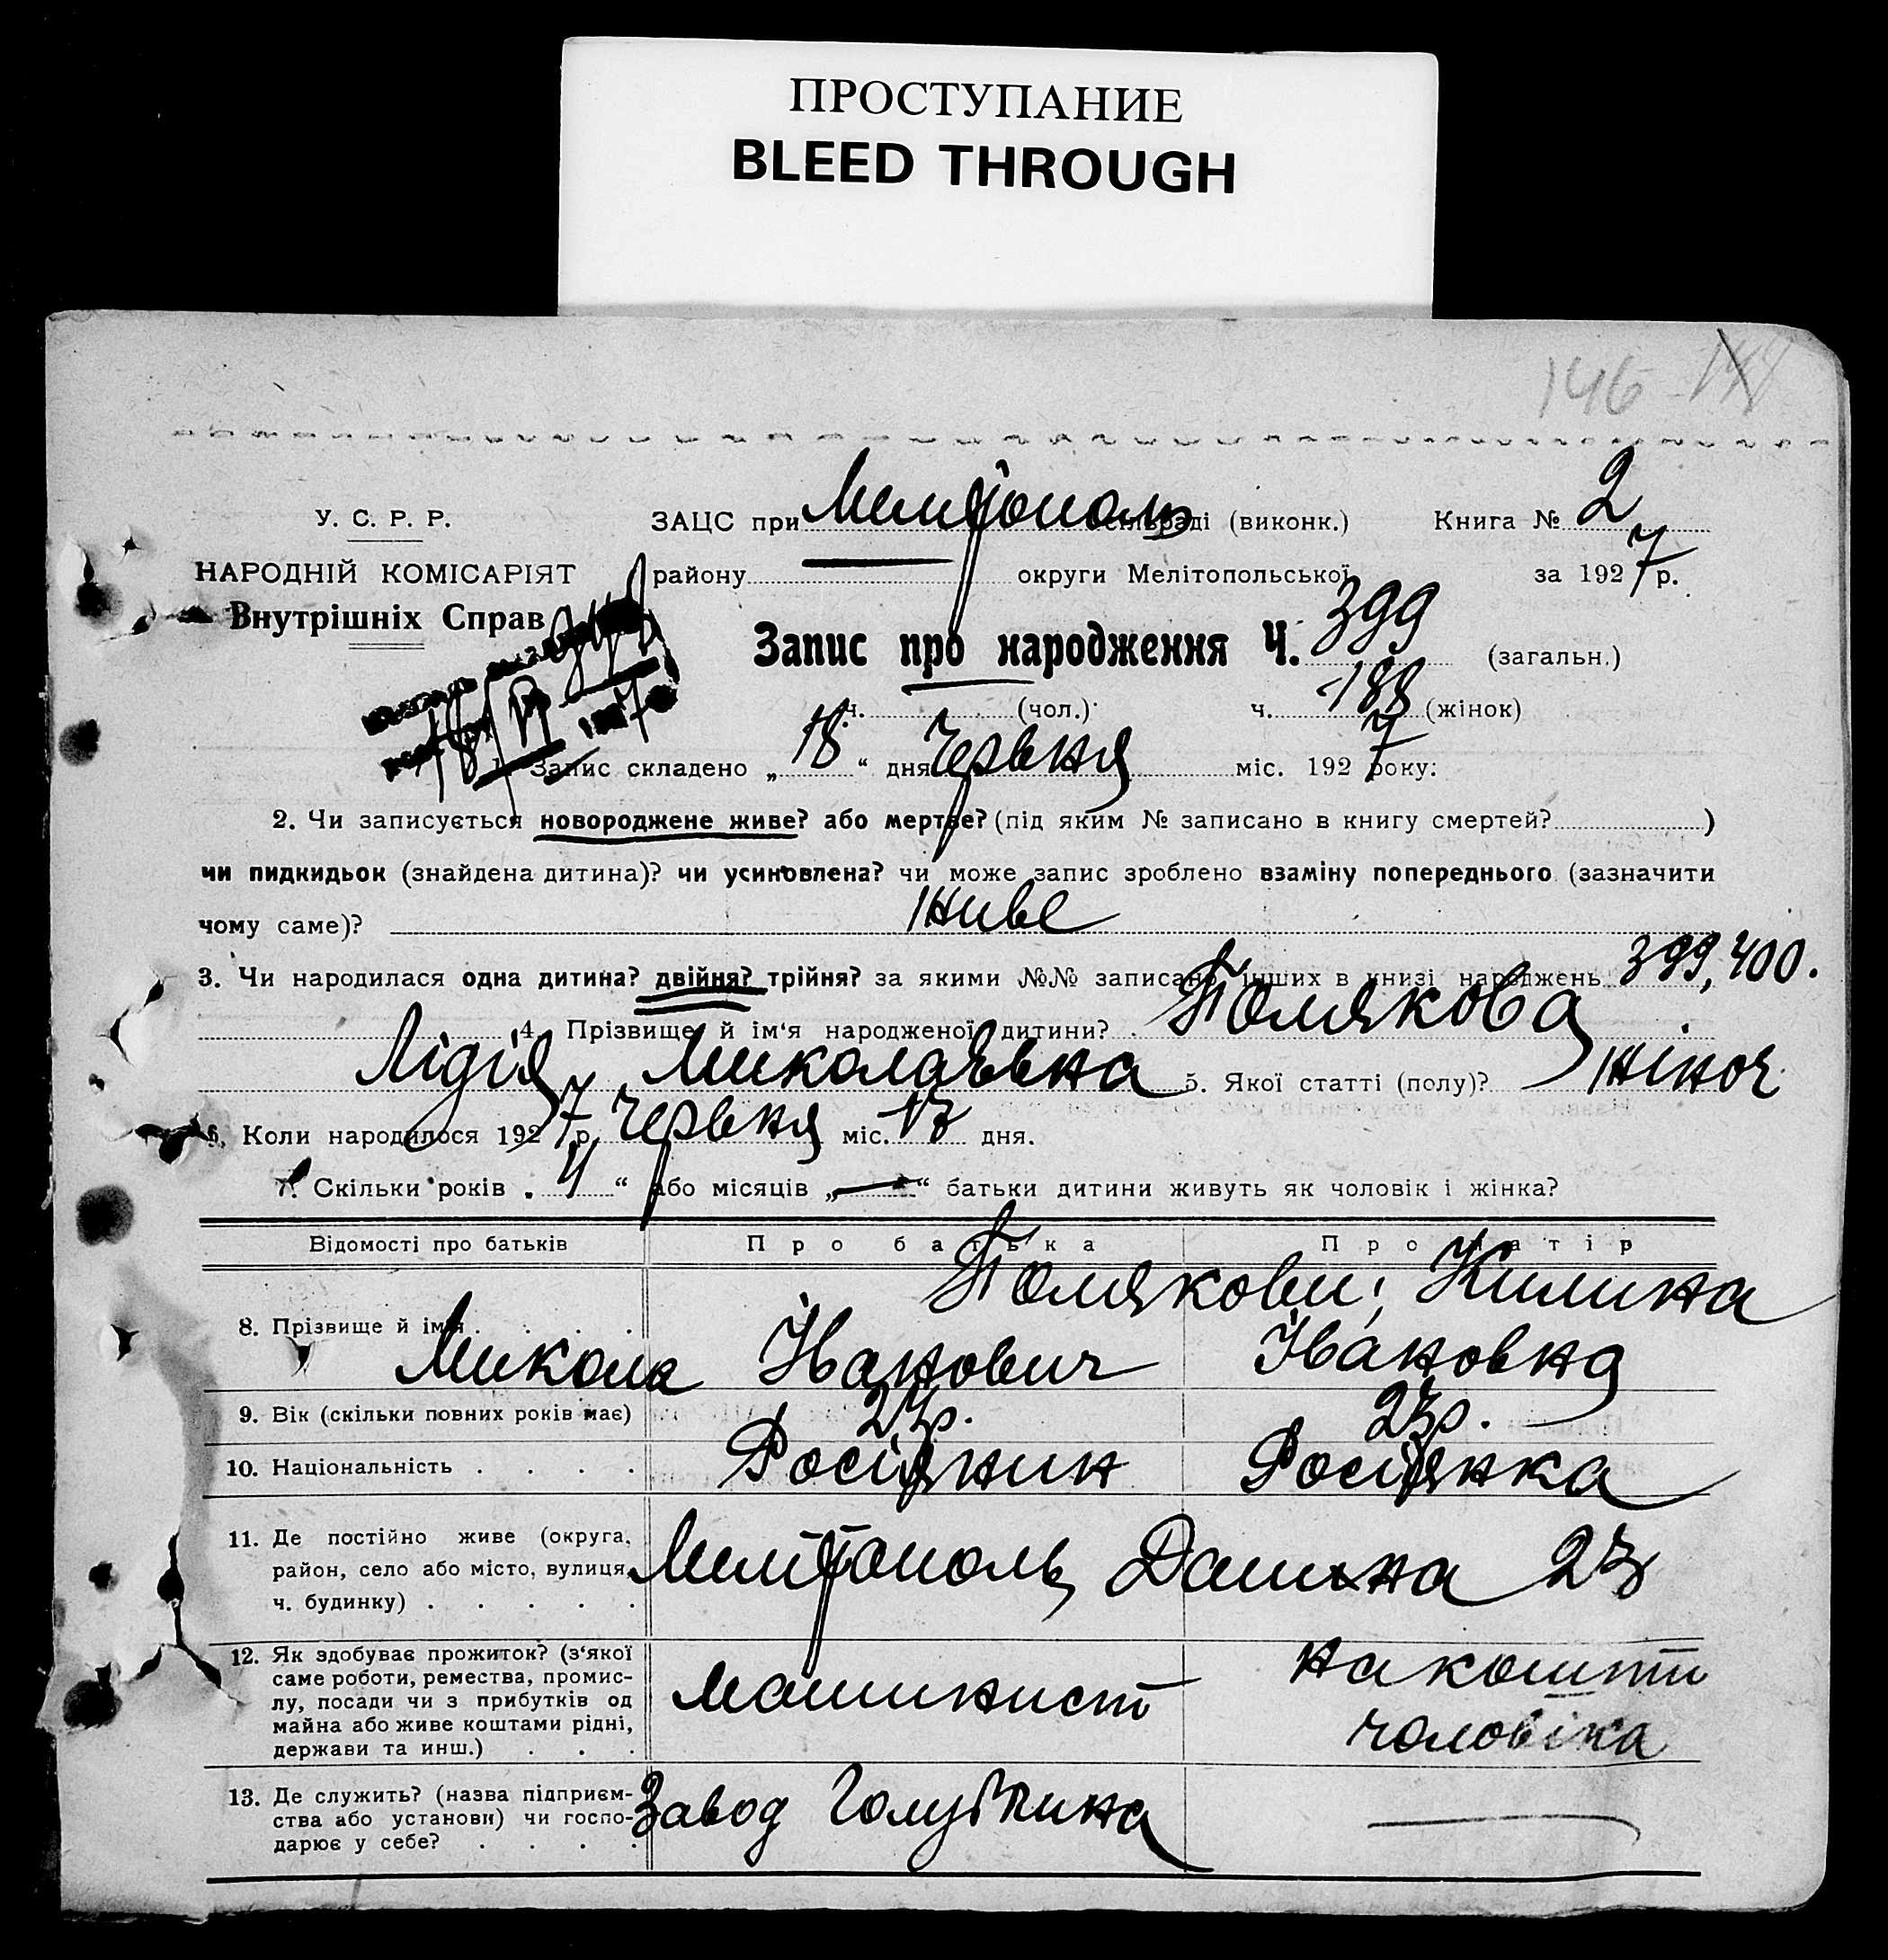 ПРОСТУПАНИЕ
BLEED THROUGH
146
У. С. Р. Р.
ЗАЦС при Мелітополь сільраді (виконк.) Книга № 2
НАРОДНІЙ КОМІСАРІЯТ
району округи Мелітопольської за 1927 р.
Внутрішніх Справ
Запис про народження Ч. 399 (загальн.)
ч. (чол.) ч. 188 (жінок)
1. Запис складено „18“ дня Червня міс. 1927 року:
2. Чи записується новороджене живе? або мертве? (під яким № записано в книгу смертей? )
чи пидкидьок (знайдена дитина)? чи усиновлена? чи може запис зроблено взаміну попереднього (зазначити
чому саме)? Живе
3. Чи народилася одна дитина? двійня? трійня? за якими №№ записано інших в книзі народжень 399, 400.
4. Прізвище й ім‘я народженої дитини? Полякова
Лідія Миколаївна 5. Якої статті (полу)? жіноч
6. Коли народилося 1927 р. Червня міс. 17 дня.
7. Скільки років „4“ або місяців „—“ батьки дитини живуть як чоловік і жінка?
Відомості про батьків Про батька Про матір
Полякови; Килина
8. Прізвище й ім‘я
Микола Іванович Івановна
9. Вік (скільки повних років має) 23р. 23р.
10. Національність Росіянин Росіянка
11. Де постійно живе (округа,
район, село або місто, вулиця,
ч. будинку)
Мелітополь 23
12. Як здобуває прожиток? (з‘якої
саме роботи, ремества, промис-
лу, посади чи з прибутків од
майна або живе коштами рідні,
держави та инш.)
Машинист
на кошти
чоловіка
13. Де служить? (назва підприєм-
ства або установи) чи госпо-
дарює у себе?
Завод